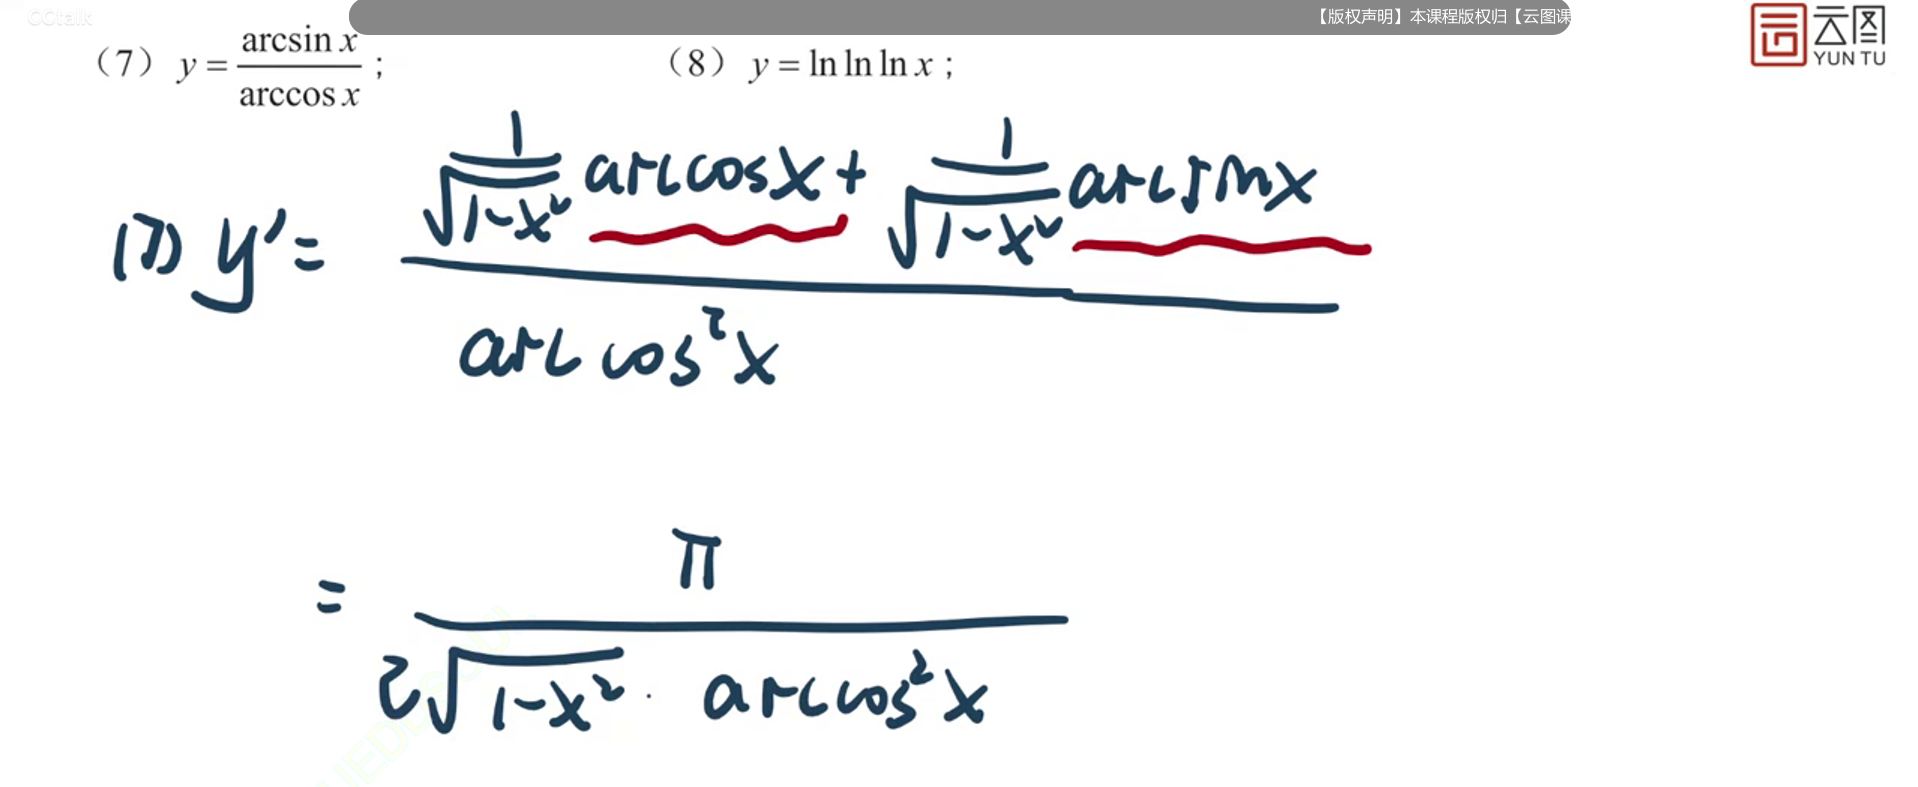 CCtalk
【版权声明】本课程版权归【云图课
云图
YUN TU
(7) y = arcsin x / arccos x ; (8) y = ln ln ln x ;
(7) y' = (1/√(1-x²) arccos x + 1/√(1-x²) arcsin x) / arccos²x
= π / (2√(1-x²) · arccos²x)